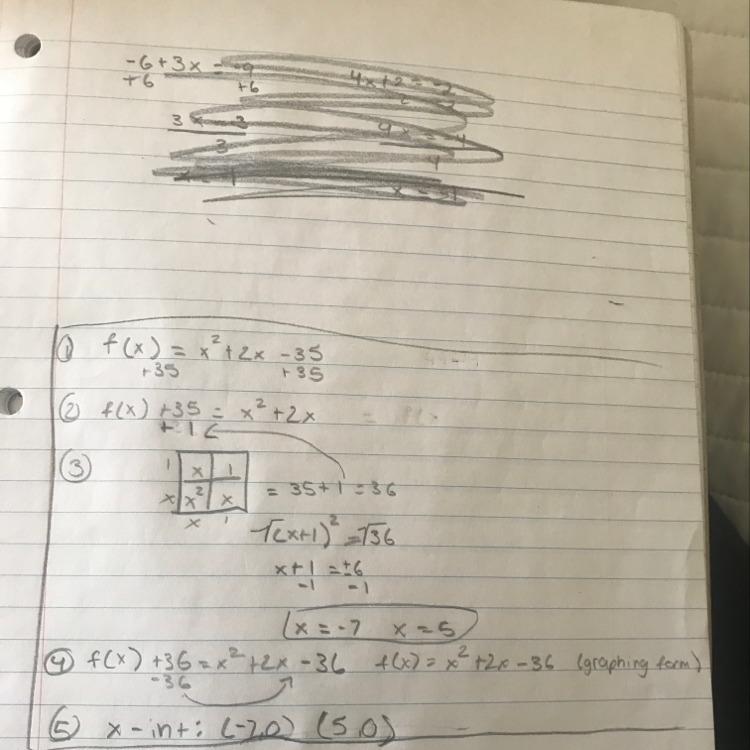 -6+3x = -9
+6 +6
4x+2=-2
3x -3
3
4x = -4
4
① f(x) = x²+2x -35
+35 +35
② f(x) +35 = x²+2x
+1
③ 1 x 1
x x² x = 35+1=36
x 1
√(x+1)² =√36
x+1 =±6
-1 -1
x=-7 x=5
④ f(x) +36=x²+2x -36 f(x)=x²+2x-36 (graphing form)
-36
⑤ x-int: (-7,0) (5,0)